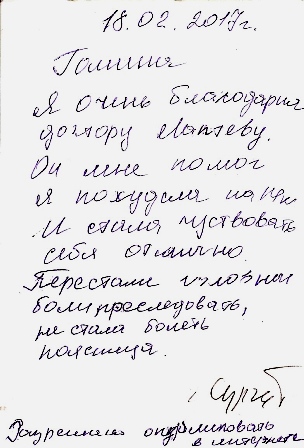 18.02.2017г.
Галина
Я очень благодарна
доктору Лаптеву.
Он мне помог
я похудела на
И стала чуствовать
себя отлично.
Перестали головные
боли преследовать,
не стала болеть
поясница.
Разрешаю опубликовать
в интернете